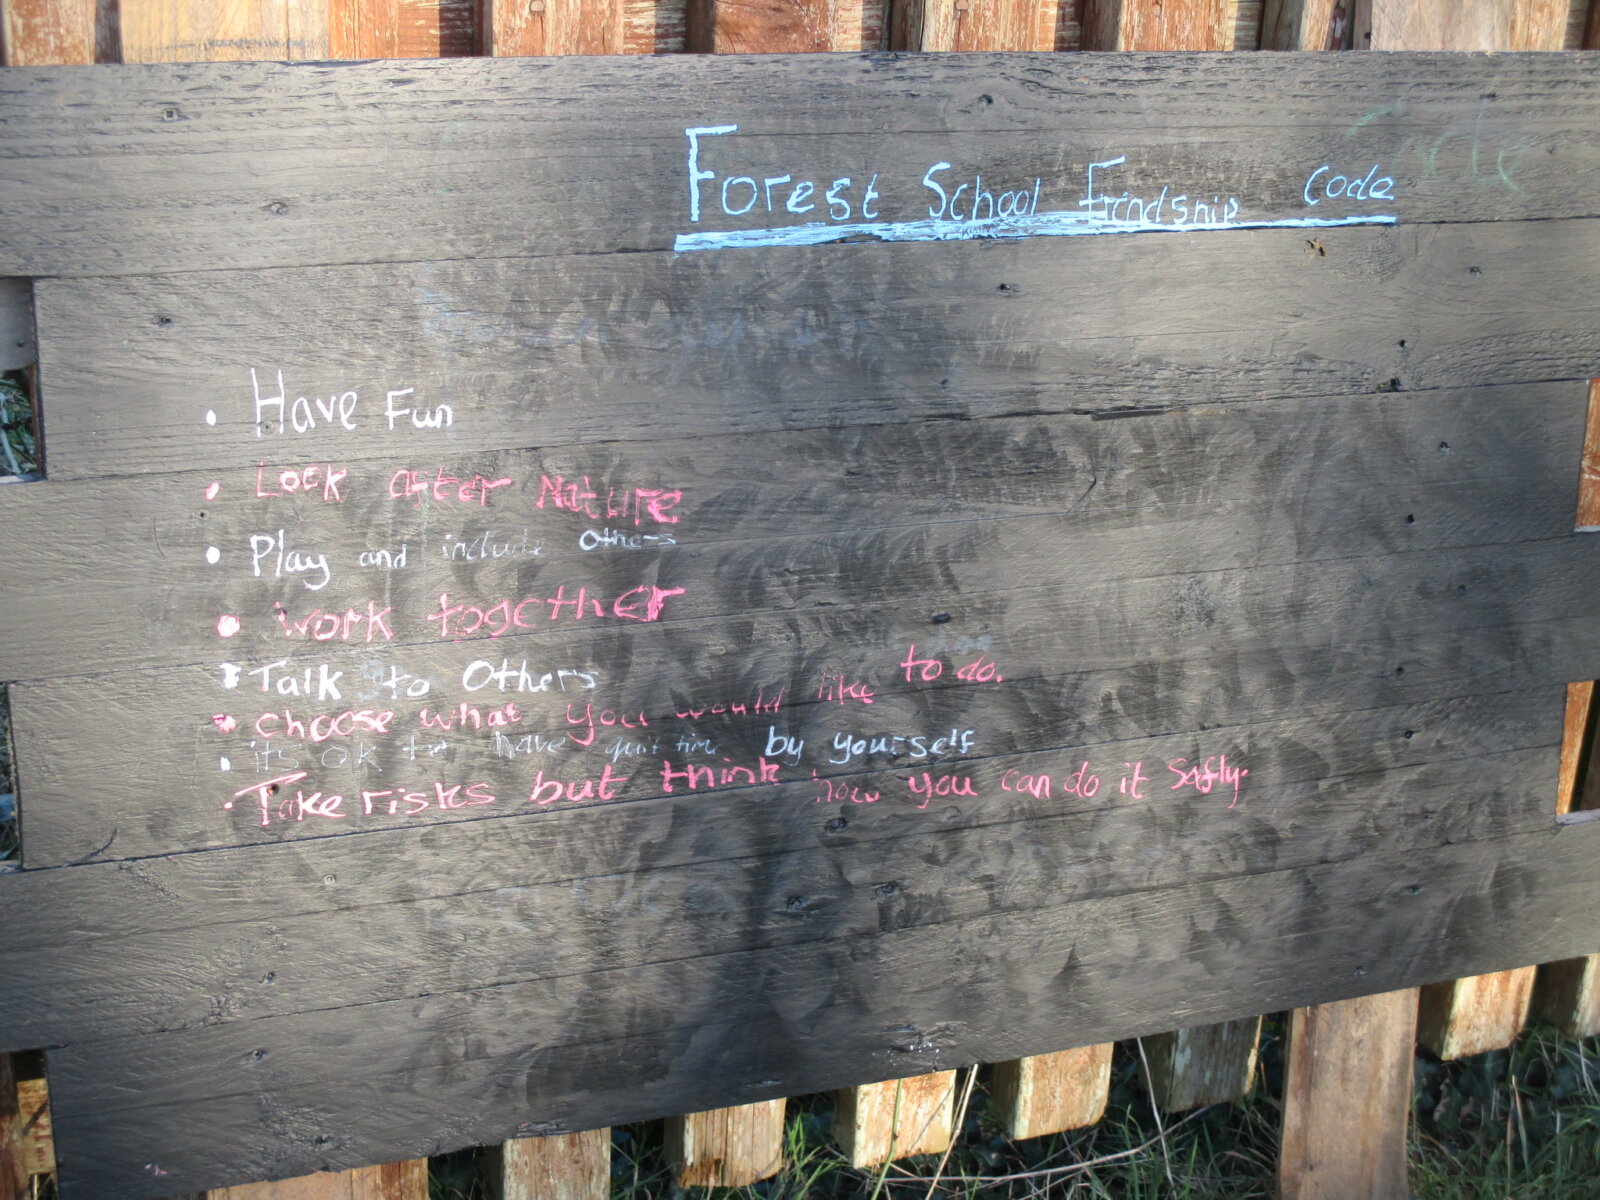 Forest School Friendship Code
• Have Fun
• Look after Nature
• Play and include Others
• work together
• Talk to Others
• choose what you would like to do.
• it's ok to have quit time by yourself
• Take risks but think how you can do it Safly.